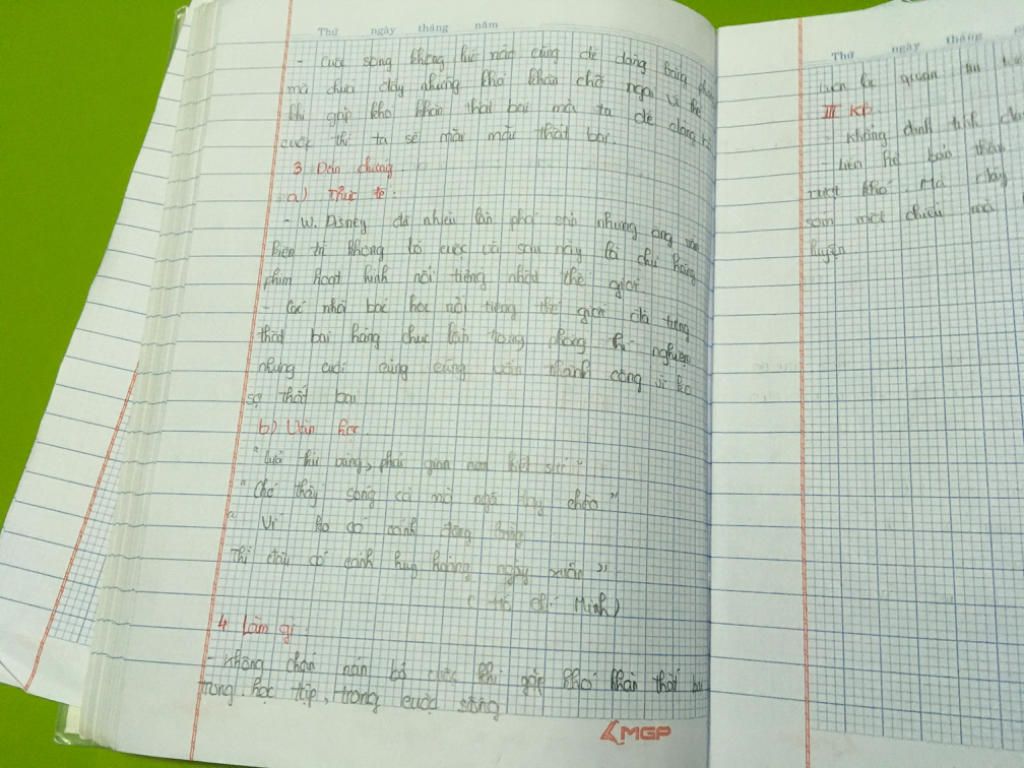 Thứ ngày tháng năm
- Cuộc sống không lúc nào cũng dễ dàng bằng
mà chứa đầy những khó khăn chở ngại vì thế
khi gặp khó khăn thất bại mà ta dễ dàng
cuộc thì ta sẽ mãi mãi thất bại
3 Dẫn chứng
a) Thực tế:
- W. Disney đã nhiều lần phá sản nhưng ông vẫn
kiên trì không bỏ cuộc và sau này là chủ hãng
phim hoạt hình nổi tiếng nhất thế giới
- Các nhà bác học nổi tiếng thế giới đã từng
thất bại hàng chục lần trong phòng thí nghiệm
nhưng cuối cùng cũng vẫn thành công vì ko
sợ thất bại
b) Văn học
"Lửa thử vàng, gian nan sức"
"Chớ thấy sóng cả mà ngã tay chèo"
" Ví ko có cảnh đông
Thì đâu có cảnh huy hoàng ngày xuân"
( Hồ Chí Minh)
4 Làm gì:
- không chán nản bỏ cuộc khi gặp khó khăn thất bại
trong học tập, trong cuộc sống
MGP
Thứ ngày tháng
quan
III KB
- khẳng định tính
- liên hệ bản thân
vượt khó
luyện